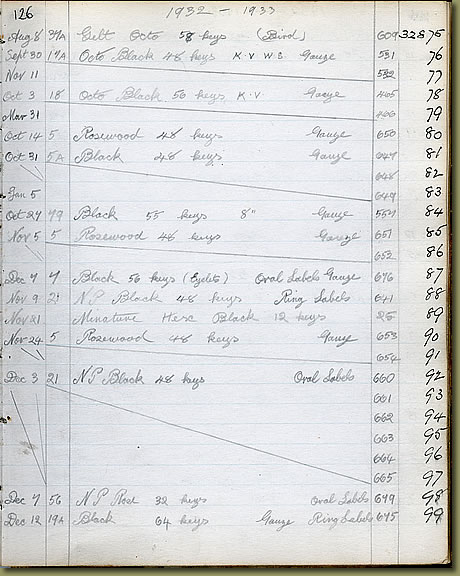 126 1932 - 1933
Aug 8 39A Gilt Octo 58 keys (Bird) 609 32875
Sept 30 19A Octo Black 48 keys K.V W.S. Gauze 531 76
Nov 11 532 77
Oct 3 18 Octo Black 56 keys K.V Gauze 405 78
Mar 31 406 79
Oct 14 5 Rosewood 48 keys Gauze 650 80
Oct 31 5A Black 48 keys Gauze 647 81
648 82
Jan 5 649 83
Oct 27 79 Black 55 keys 8" Gauze 557 84
Nov 5 5 Rosewood 48 keys Gauze 651 85
652 86
Dec 7 7 Black 56 keys (Eyelets) Oval Labels Gauze 676 87
Nov 9 21 N.P. Black 48 keys Ring Labels 641 88
Nov 21 Minature Hexe Black 12 keys 25 89
Nov 24 5 Rosewood 48 keys Gauze 653 90
654 91
Dec 3 21 N.P Black 48 keys Oval Labels 660 92
661 93
662 94
663 95
664 96
665 97
Dec 7 56 N.P. Rose 32 keys Oval Labels 679 98
Dec 12 19A Black 64 keys Gauze Ring Labels 675 99